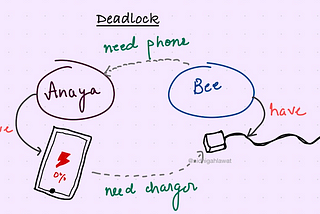 Deadlock
need phone
Anaya
Bee
have
0%
need charger